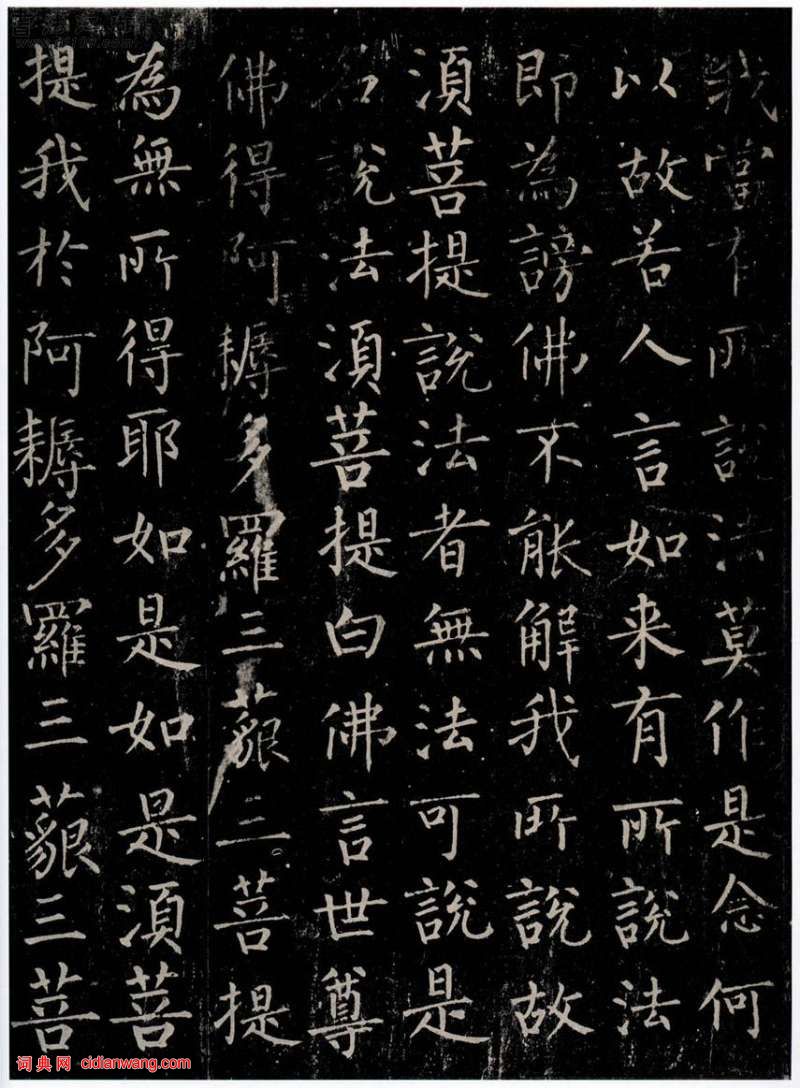 我當有所說法莫作是念何
以故若人言如来有所說法
即為謗佛不能解我所說故
湏菩提說法者無法可說是
名說法湏菩提白佛言世尊
佛得阿耨多羅三藐三菩提
為無所得耶如是如是湏菩
提我於阿耨多羅三藐三菩
词典网·cidianwang.com